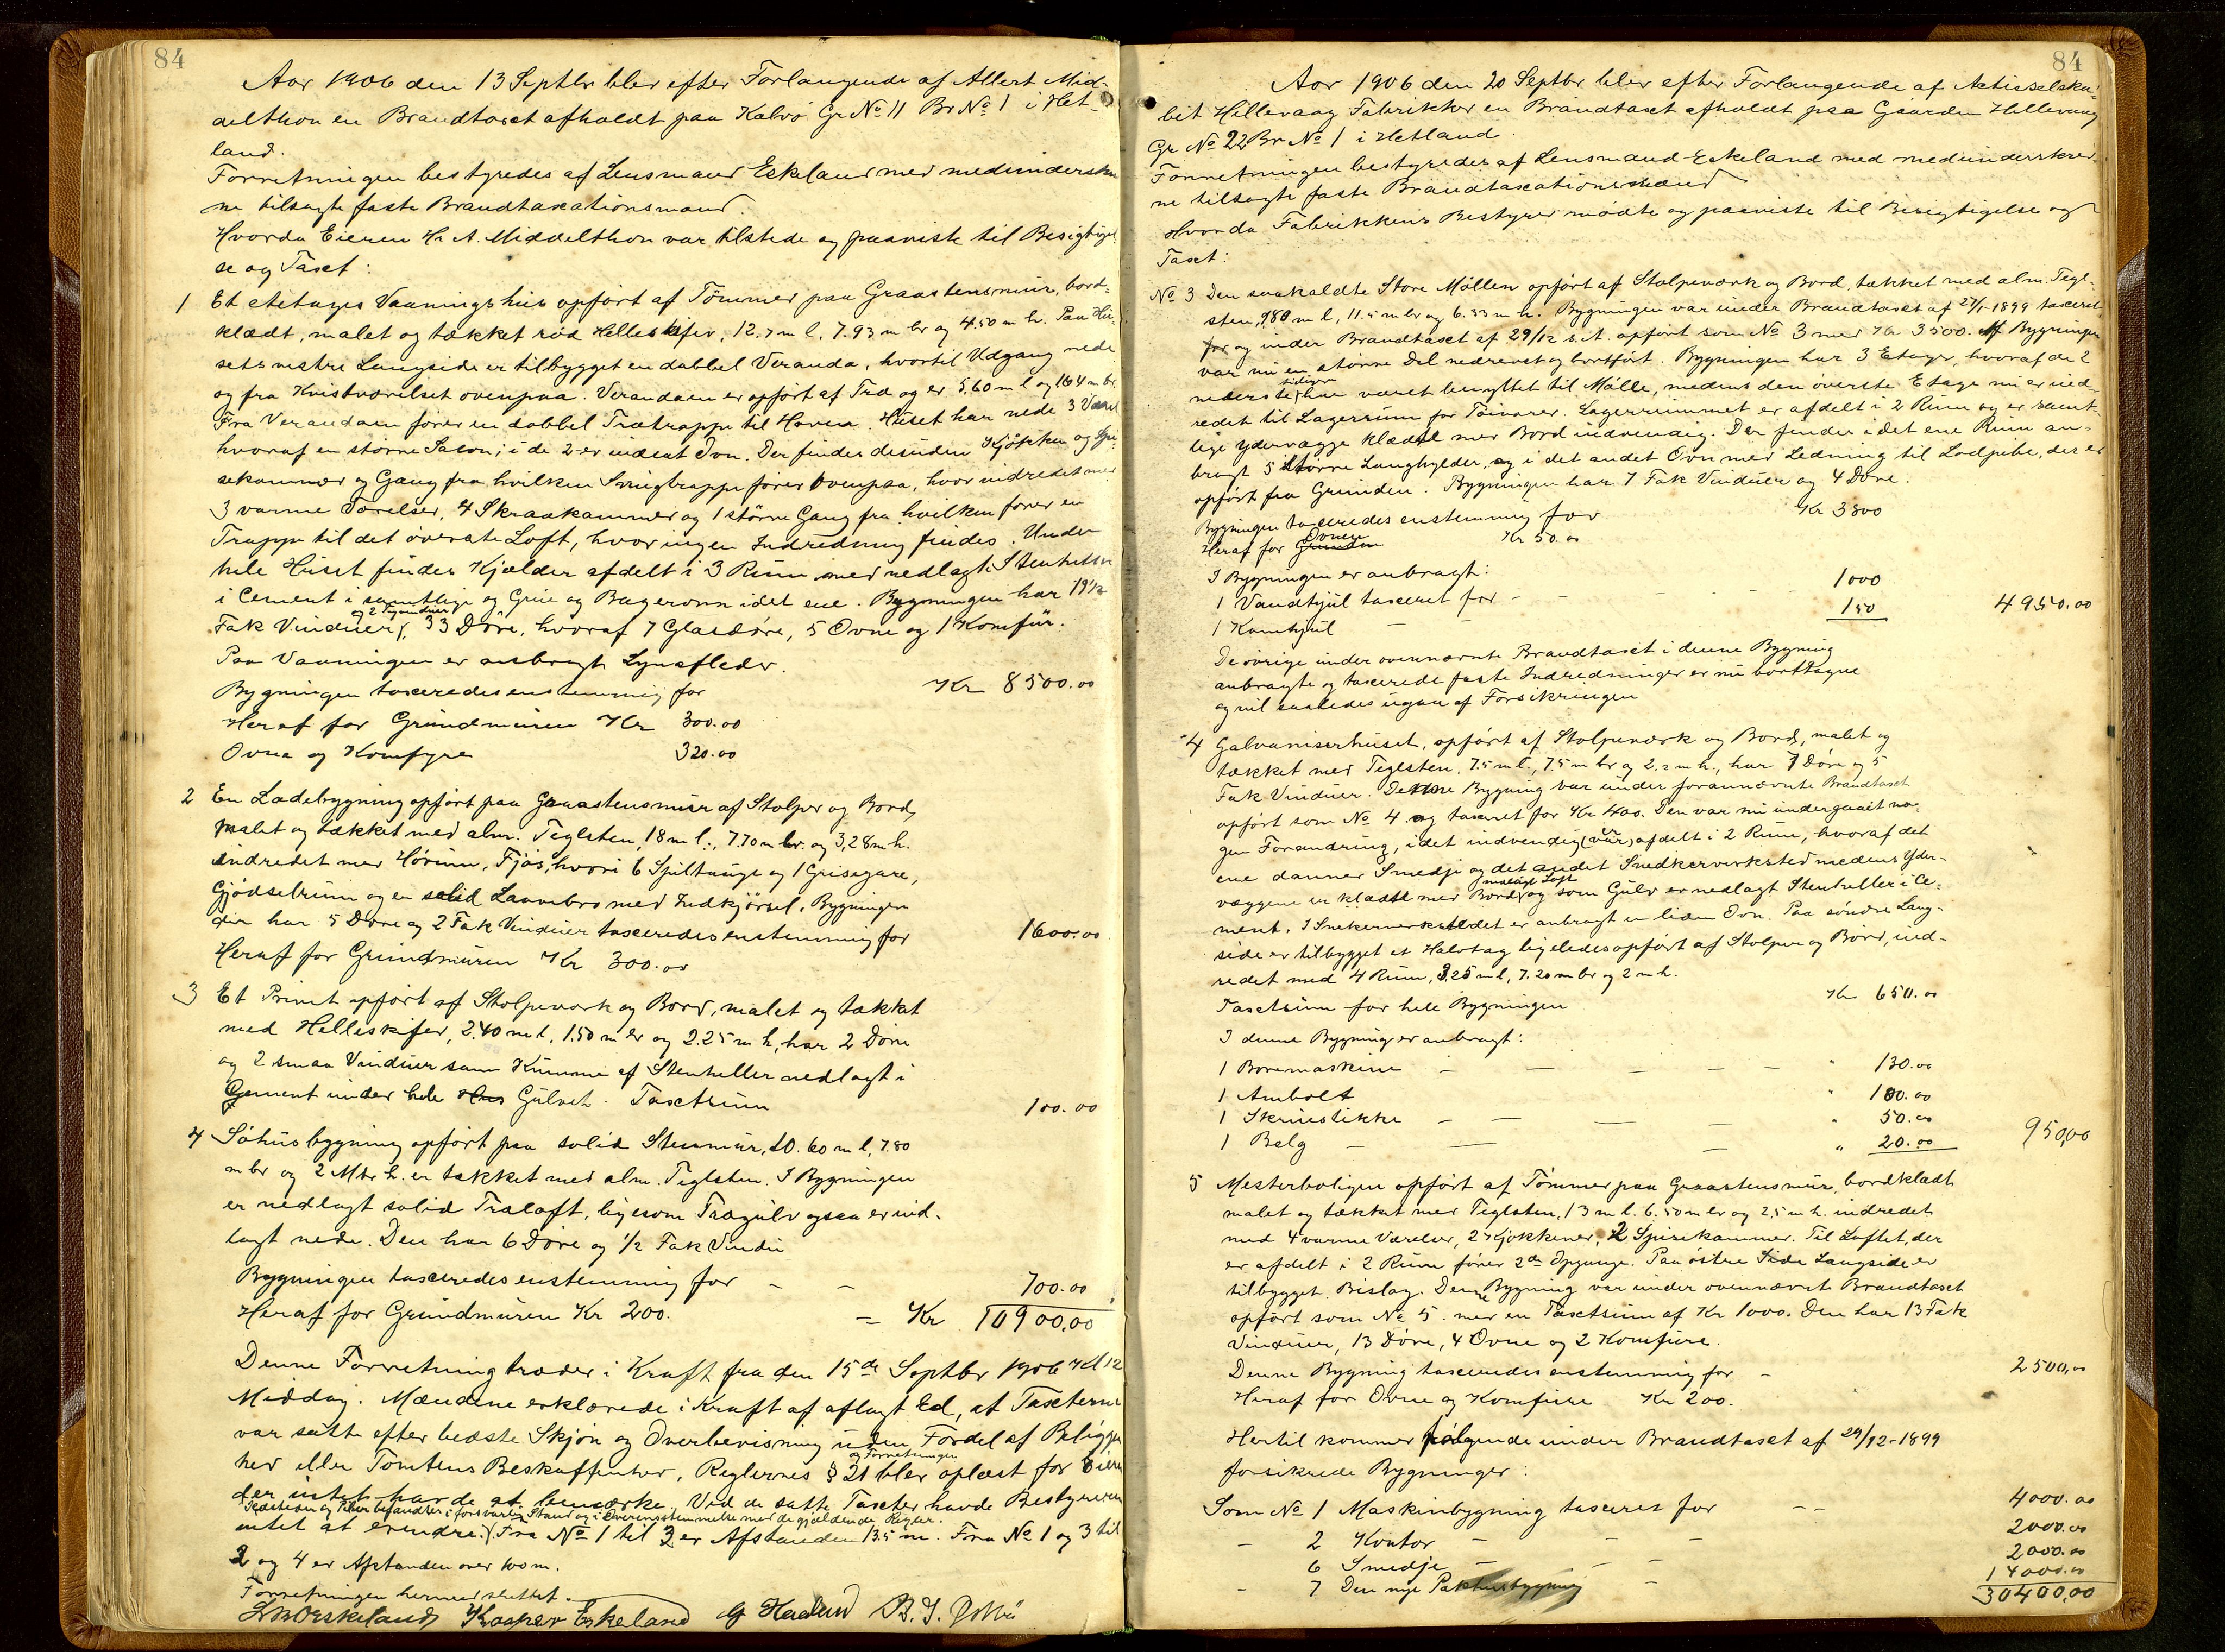 84
Aar 1906 den 13 Septbr blev efter Forlangende af Allert Mid-
delthon en Brandtaxt afholdt paa Kalvø Gr No 11 Br No 1 i Het-
land.
Forretningen bestyredes af Lensmand Eskeland med medunderskrev
ne tilsagte faste Brandtaxationsmænd.
Hvorda Eieren Hr A. Middelthon var tilstede og paaviste til Besigtigel
se og Taxt:
1 Et etetages Vaaningshus opført af Tømmer paa Graastensmur, bord-
klædt, malet og tækket rød Helleskifer, 12.7 m l, 7.93 m br og 4.50 m h. Paa Hu-
sets vestre Langside er tilbygget en dobbel Veranda, hvortil Udgang nede
og fra Kvistværelset ovenpaa. Verandaen er opført af Træ og er 5.60 m l og 1.64 m br.
Fra Verandaen fører en dobbel Trætrappe til Haven. Huset har nede 3 Værel
hvoraf en større Salon; i de 2 er indsat Ovn. Der findes desuden Kjøkken og Spi
sekammer og Gang fra hvilken Svingtrappe fører ovenpaa, hvor indredet med
3 varme Værelser, 4 Skraakammer og 1 større Gang fra hvilken fører en
Trappe til det øverste Loft, hvor ingen Indredning findes. Under
hele Huset findes Kjælder afdelt i 3 Rum med nedlagt Stenheller
i Cement i samtlige og Grue og Bagerovn i det ene. Bygningen har 19 1/2
Fak Vinduer, 33 Døre, hvoraf 7 Glasdøre, 5 Ovne og 1 Komfür.
Paa Vaaningen er anbragt Lynafleder.
Bygningen taxeredes enstemmig for Kr 8500.00
Heraf for Grundmuren Kr 300.00
Ovne og Komfyre 320.00
2 En Ladebygning opført paa Graastensmur af Stolper og Bord,
malet og tækket med alm. Teglsten, 18 m l., 7.70 m br. og 3,28 m h.
indredet med Hørum, Fjøs, hvori 6 Spiltauge og 1 Grisegare,
Gjødselrum og en solid Laavebro med Indkjørsel. Bygningen
der har 5 Døre og 2 Fak Vinduer taxeredes enstemmig for 1600.00
Heraf for Grundmuren Kr 300.00
3 Et Privet opført af Stolpeværk og Bord, malet og tækket
med Helleskifer, 2.40 m l, 1.50 m br og 2.25 m h, har 2 Døre
og 2 smaa Vinduer samt Kumme af Stenheller nedlagt i
Cement under hele Gulvet. Taxtsum 100.00
4 Søhusbygning opført paa solid Stenmur, 10.60 m l, 7.80
m br og 2 Mtr h. er tækket med alm. Teglsten. I Bygningen
er nedlagt solid Træloft, ligesom Trægulv ogsaa er ind-
lagt nede. Den har 6 Døre og 1/2 Fak Vindu
Bygningen taxeredes enstemmig for - - 700.00
Heraf for Grundmuren Kr 200. = Kr 10900,00
Denne Forretning træder i Kraft fra den 15de Septbr 1906 Kl 12
Middag. Mændene erklærede i Kraft af aflagt Ed, at Taxterne
var satte efter bedste Skjøn og Overbevisning uden Fordel af Beligge
hed eller Tomtens Beskaffenhed. Reglernes § 21 og Forretningen blev oplæst for Eieren
der intet havde at bemærke. Ved de satte Taxter havde Bestyreren
Ildsteder og Piber befandtes i forsvarlig Stand og i Overensstemmelse med de gjældende Regler.
intet at erindre. Fra No 1 til 3 er Afstanden 13.5 m. Fra No 1 og 3 til
2 og 4 er Afstanden over 100 m.
Forretningen hermed sluttet.
Kasper Eskeland
84
Aar 1906 den 20 Septbr blev efter Forlangende af Actieselska-
bet Hillevaag Fabrikker en Brandtaxt afholdt paa Gaarden Hillevaag
Gr No 22 Br No 1 i Hetland
Forretningen bestyredes af Lensmand Eskeland med medunderskrev-
ne tilsagte faste Brandtaxationsmænd
Hvorda Fabrikkens Bestyrer mødte og paaviste til Besigtigelse og
Taxt:
No 3 Den saakaldte Store Møllen opført af Stolpeværk og Bord, tækket med alm. Tegl-
sten, 9.80 m l, 11.5 m br og 6.33 m h. Bygningen var under Brandtaxt af 27/1-1899 taxeret
for og under Brandtaxt af 29/12 s. A. opført som No 3 med Kr 3500. Af Bygningen
var nu en større Del nedrevet og bortført. Bygningen har 3 Etager, hvoraf de 2
nederste tidligere har været benyttet til Mølle, medens den øverste Etage nu er ind-
redet til Lagerrum for Tøivarer. Lagerrummet er afdelt i 2 Rum og er samt-
lige Ydervægge klædte med Bord indvendig. Der findes i det ene Rum an-
bragt 5 større Langhylder, og i det andet Ovn med Ledning til Lodpibe, der er
opført fra Grunden. Bygningen har 7 Fak Vinduer og 4 Døre.
Bygningen taxeredes enstemmig for Kr 3800
Heraf for Ovnen Kr 50.00
I Bygningen er anbragt:
1 Vandhjul taxeret for - - - - 1000
1 Kamhjul - - 150 4950.00
De øvrige under ovennævnte Brandtaxt i denne Bygning
anbragte og taxerede faste Indredninger er nu borttagne
og vil saaledes udgaa af Forsikringen
4 Galvaniserhuset, opført af Stolpeværk og Bord, malet og
tækket med Teglsten, 7.5 m l., 7.5 m br og 2.2 m h., har 7 Døre og 5
Fak Vinduer. Denne Bygning var under forannævnte Brandtaxt
opført som No 4 og taxeret for Kr 400. Den var nu undergaaet no-
gen Forandring, idet indvendig (var) afdelt i 2 Rum, hvoraf det
ene danner Smedje og det andet Snedkerverksted medens Yder-
væggene er klædte med Bord, indlagt Loft og som Gulv er nedlagt Stenheller i Ce-
ment. I Snekerverkstedet er anbragt en liden Ovn. Paa søndre Lang-
side er tilbygget et Halvtag ligeledes opført af Stolper og Bord, ind-
redet med 4 Rum, 3,25 m l, 7.20 m br og 2 m h.
Taxtsum for hele Bygningen Kr 650.00
I denne Bygning er anbragt:
1 Boremaskine - - - - - " 130.00
1 Ambolt " 100.00
1 Skruestikke - - - - " 50.00
1 Belg - - - " 20.00 950,00
5 Mesterboligen opført af Tømmer paa Graastensmur, bordklædt,
malet og tækket med Teglsten, 13 m l. 6.50 m br og 2,5 m h. indredet
med 4 varme Værelser, 2 Kjøkkener, 2 Spisekammer. Til Loftet, der
er afdelt i 2 Rum fører 2de Opgange. Paa østre Side Langside er
tilbygget Bislag. Denne Bygning var under ovennævnt Brandtaxt
opført som No 5. med en Taxtsum af Kr 1000. Den har 13 Fak
Vinduer, 13 Døre, 4 Ovne og 2 Komfure.
Denne Bygning taxeredes enstemmig for - 2500,00
Heraf for Ovne og Komfure Kr 200.
Hertil kommer følgende under Brandtaxt af 29/12-1899
forsikrede Bygninger:
Som No 1 Maskinbygning taxeret for - - 4000.00
- 2 Kontor - - - - 2000.00
6 Smedje - - - 2000.00
- 7 Den nye Pakhusbygning - 14000.00
30400,00